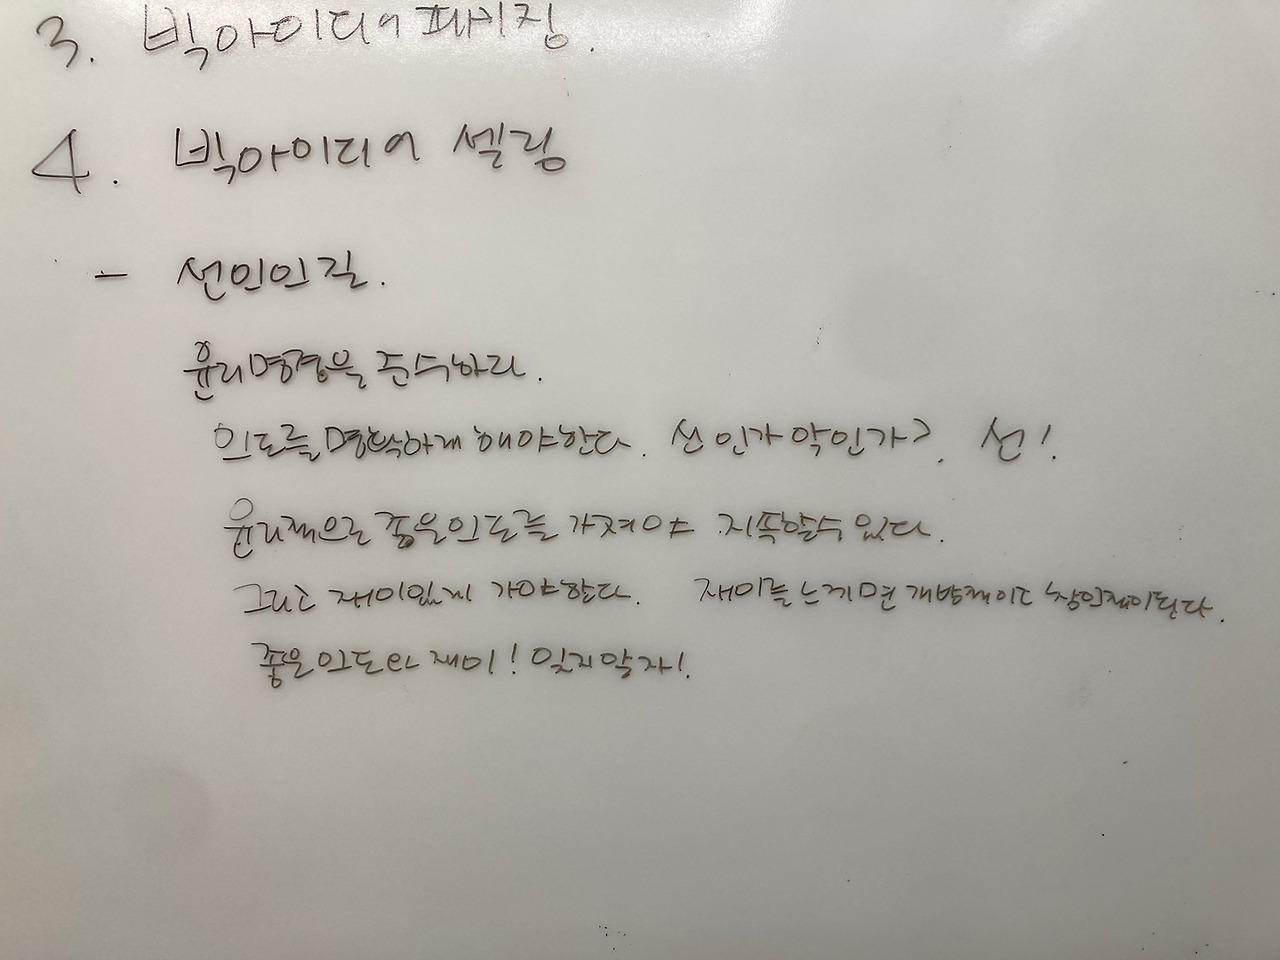 3. 빅아이디어 패키징.
4. 빅아이디어 셀링
- 선의의 길.
윤리명령을 준수하라.
의도를 명확하게 해야한다. 선인가 악인가? 선!
윤리적으로 좋은의도를 가져야 지속할수 있다.
그리고 재미있게 가야한다. 재미를 느끼면 개방적이고 창의적이된다.
좋은의도와 재미! 잊지말자!